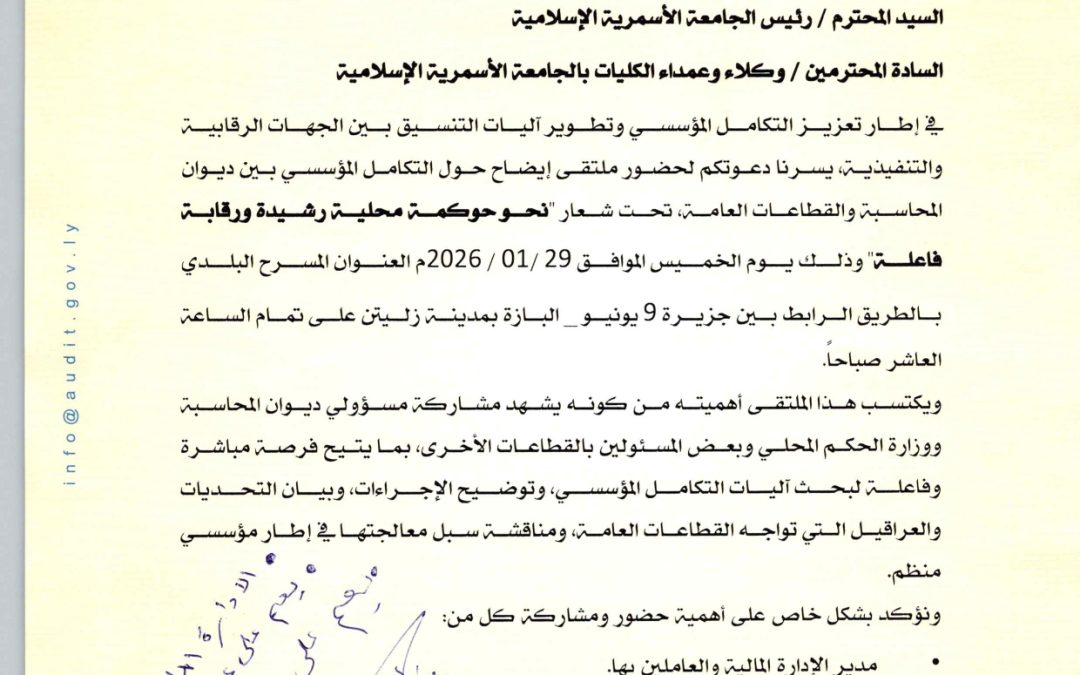 السيد المحترم / رئيس الجامعة الأسمرية الإسلامية
السادة المحترمين / وكلاء وعمداء الكليات بالجامعة الأسمرية الإسلامية
في إطار تعزيز التكامل المؤسسي وتطوير آليات التنسيق بين الجهات الرقابية
والتنفيذية، يسرنا دعوتكم لحضور ملتقى إيضاح حول التكامل المؤسسي بين ديوان
المحاسبة والقطاعات العامة، تحت شعار "نحو حوكمة محلية رشيدة ورقابة
فاعلة" وذلك يوم الخميس الموافق 29 /01 / 2026م العنوان المسرح البلدي
بالطريق الرابط بين جزيرة 9 يونيو _ البازة بمدينة زليتن على تمام الساعة
العاشر صباحاً.
ويكتسب هذا الملتقى أهميته من كونه يشهد مشاركة مسؤولي ديوان المحاسبة
ووزارة الحكم المحلي وبعض المسئولين بالقطاعات الأخرى، بما يتيح فرصة مباشرة
وفاعلة لبحث آليات التكامل المؤسسي، وتوضيح الإجراءات، وبيان التحديات
والعراقيل التي تواجه القطاعات العامة، ومناقشة سبل معالجتها في إطار مؤسسي
منظم.
ونؤكد بشكل خاص على أهمية حضور ومشاركة كل من:
• مدير الإدارة المالية والعاملين بها.
info@audit.gov.ly